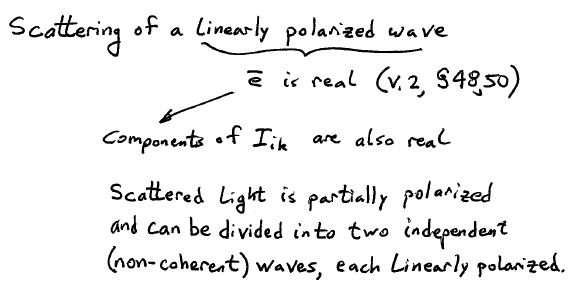 Scattering of a linearly polarized wave
e̅ is real (V.2, §48,50)
Components of Iik are also real
Scattered Light is partially polarized
and can be divided into two independent
(non-coherent) waves, each Linearly polarized.